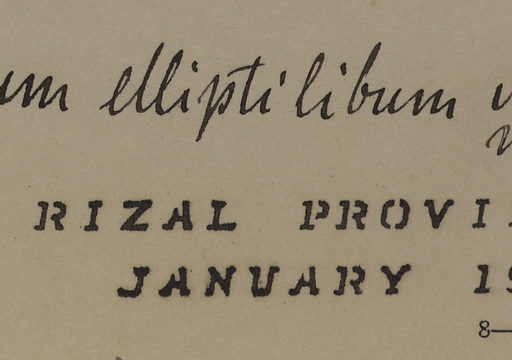 um elliptilibum
RIZAL PROVI
JANUARY 19
8—